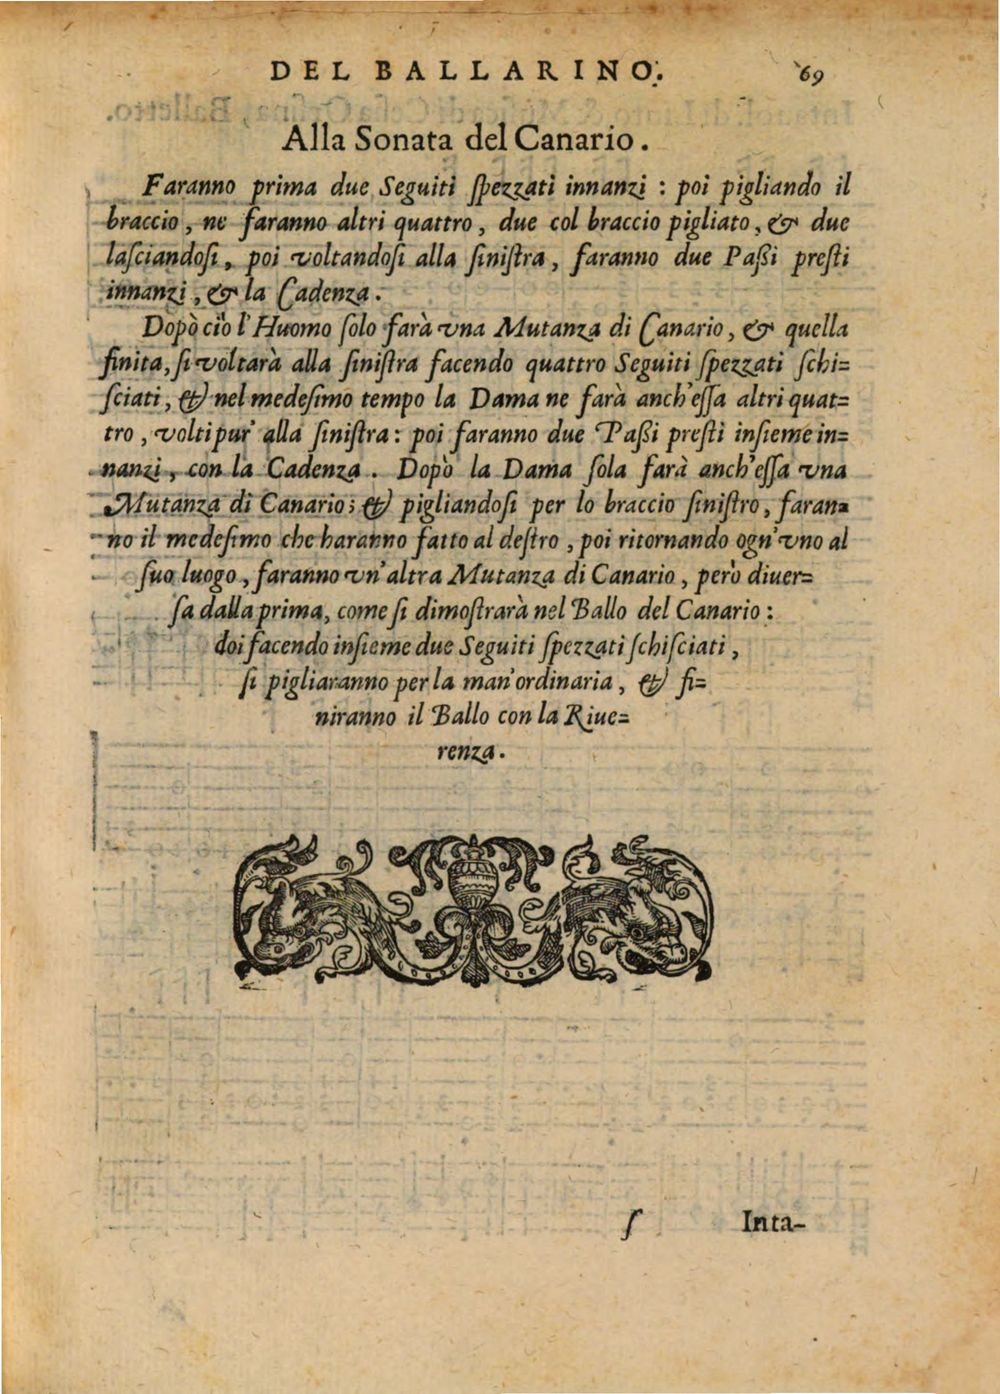 DEL BALLARINO. 69
Alla Sonata del Canario.
Faranno prima due Seguiti ſpezzati innanzi : poi pigliando il
braccio, ne faranno altri quattro, due col braccio pigliato, & due
laſciandoſi, poi voltandoſi alla ſiniſtra, faranno due Paßi preſti
innanzi, & la Cadenza.
Dopò ciò l'Huomo ſolo farà vna Mutanza di Canario, & quella
finita, ſi voltarà alla ſiniſtra facendo quattro Seguiti ſpezzati ſchi=
ſciati, & nel medeſimo tempo la Dama ne farà anch'eſſa altri quat=
tro, volti pur' alla ſiniſtra: poi faranno due Paßi preſti inſieme in=
nanzi, con la Cadenza. Dopò la Dama ſola farà anch'eſſa vna
Mutanza di Canario; & pigliandoſi per lo braccio ſiniſtro, faran=
no il medeſimo che haranno fatto al deſtro, poi ritornando ogn'vno al
ſuo luogo, faranno vn'altra Mutanza di Canario, però diuer=
ſa dalla prima, come ſi dimoſtrarà nel Ballo del Canario :
doi facendo inſieme due Seguiti ſpezzati ſchiſciati,
ſi pigliaranno per la man'ordinaria, & fi=
niranno il Ballo con la Riue=
renza.
ſ Inta-